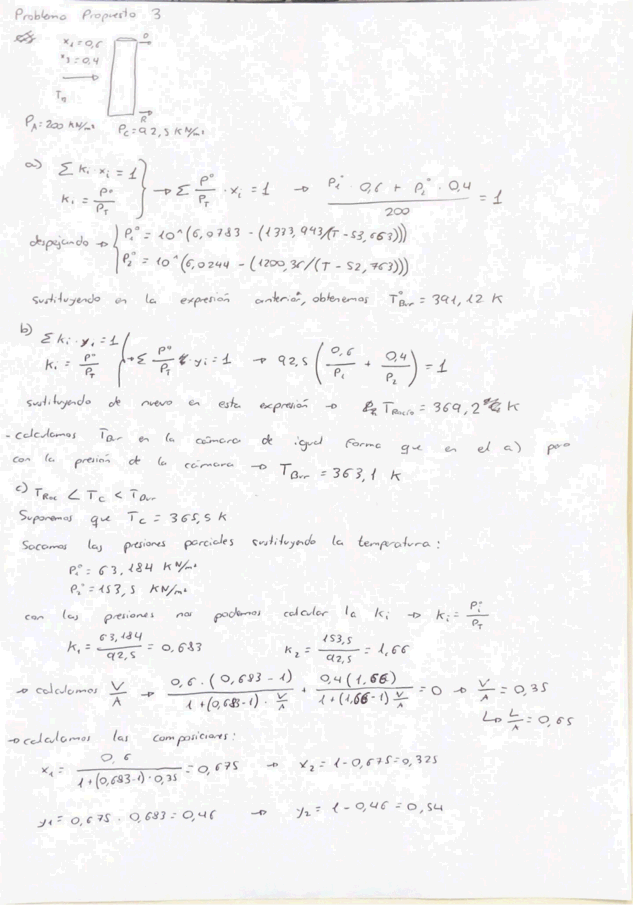 Problema Propuesto 3
x₁=0,6
x₂=0,4
D
R
P_A=200 KN/m² P_C=92,5 KN/m²
a) Σ Ki · xi = 1
Ki = P°/P_T → Σ P°/P_T · xi = 1 → (P₁° · 0,6 + P₂° · 0,4)/200 = 1
despejando → P₁° = 10^(6,0783 - (1333,943/(T-53,663)))
P₂° = 10^(6,0244 - (1200,36/(T-52,763)))
sustituyendo en la expresión anterior, obtenemos T°Bur = 391,12 K
b) Σ Ki · yi = 1
Ki = P°/P_T → Σ P°/P_T yi = 1 → 92,5 (0,6/P₁ + 0,4/P₂) = 1
sustituyendo de nuevo en esta expresión → T Rocío = 369,2 K
- calculamos TBur en la cámara de igual forma que en el a) pero
con la presión de la cámara → TBur = 363,1 K
c) TRoc < Tc < TBur
Suponemos que Tc = 365,5 K
Sacamos las presiones parciales sustituyendo la temperatura:
P₁° = 63,184 KN/m²
P₂° = 153,5 KN/m²
con las presiones nos podemos calcular la Ki → Ki = Pi°/P_T
K₁ = 63,184/92,5 = 0,683 K₂ = 153,5/92,5 = 1,66
→ calculamos V/A → 0,6 · (0,683 - 1)/(1 + (0,683-1) · V/A) + 0,4(1,66)/(1 + (1,66-1) V/A) = 0 → V/A = 0,35
↳ L/A = 0,65
→ calculamos las composiciones:
x₁ = 0,6/(1+(0,683-1)·0,35) = 0,675 → x₂ = 1-0,675=0,325
y₁ = 0,675 · 0,683 = 0,46 → y₂ = 1 - 0,46 = 0,54